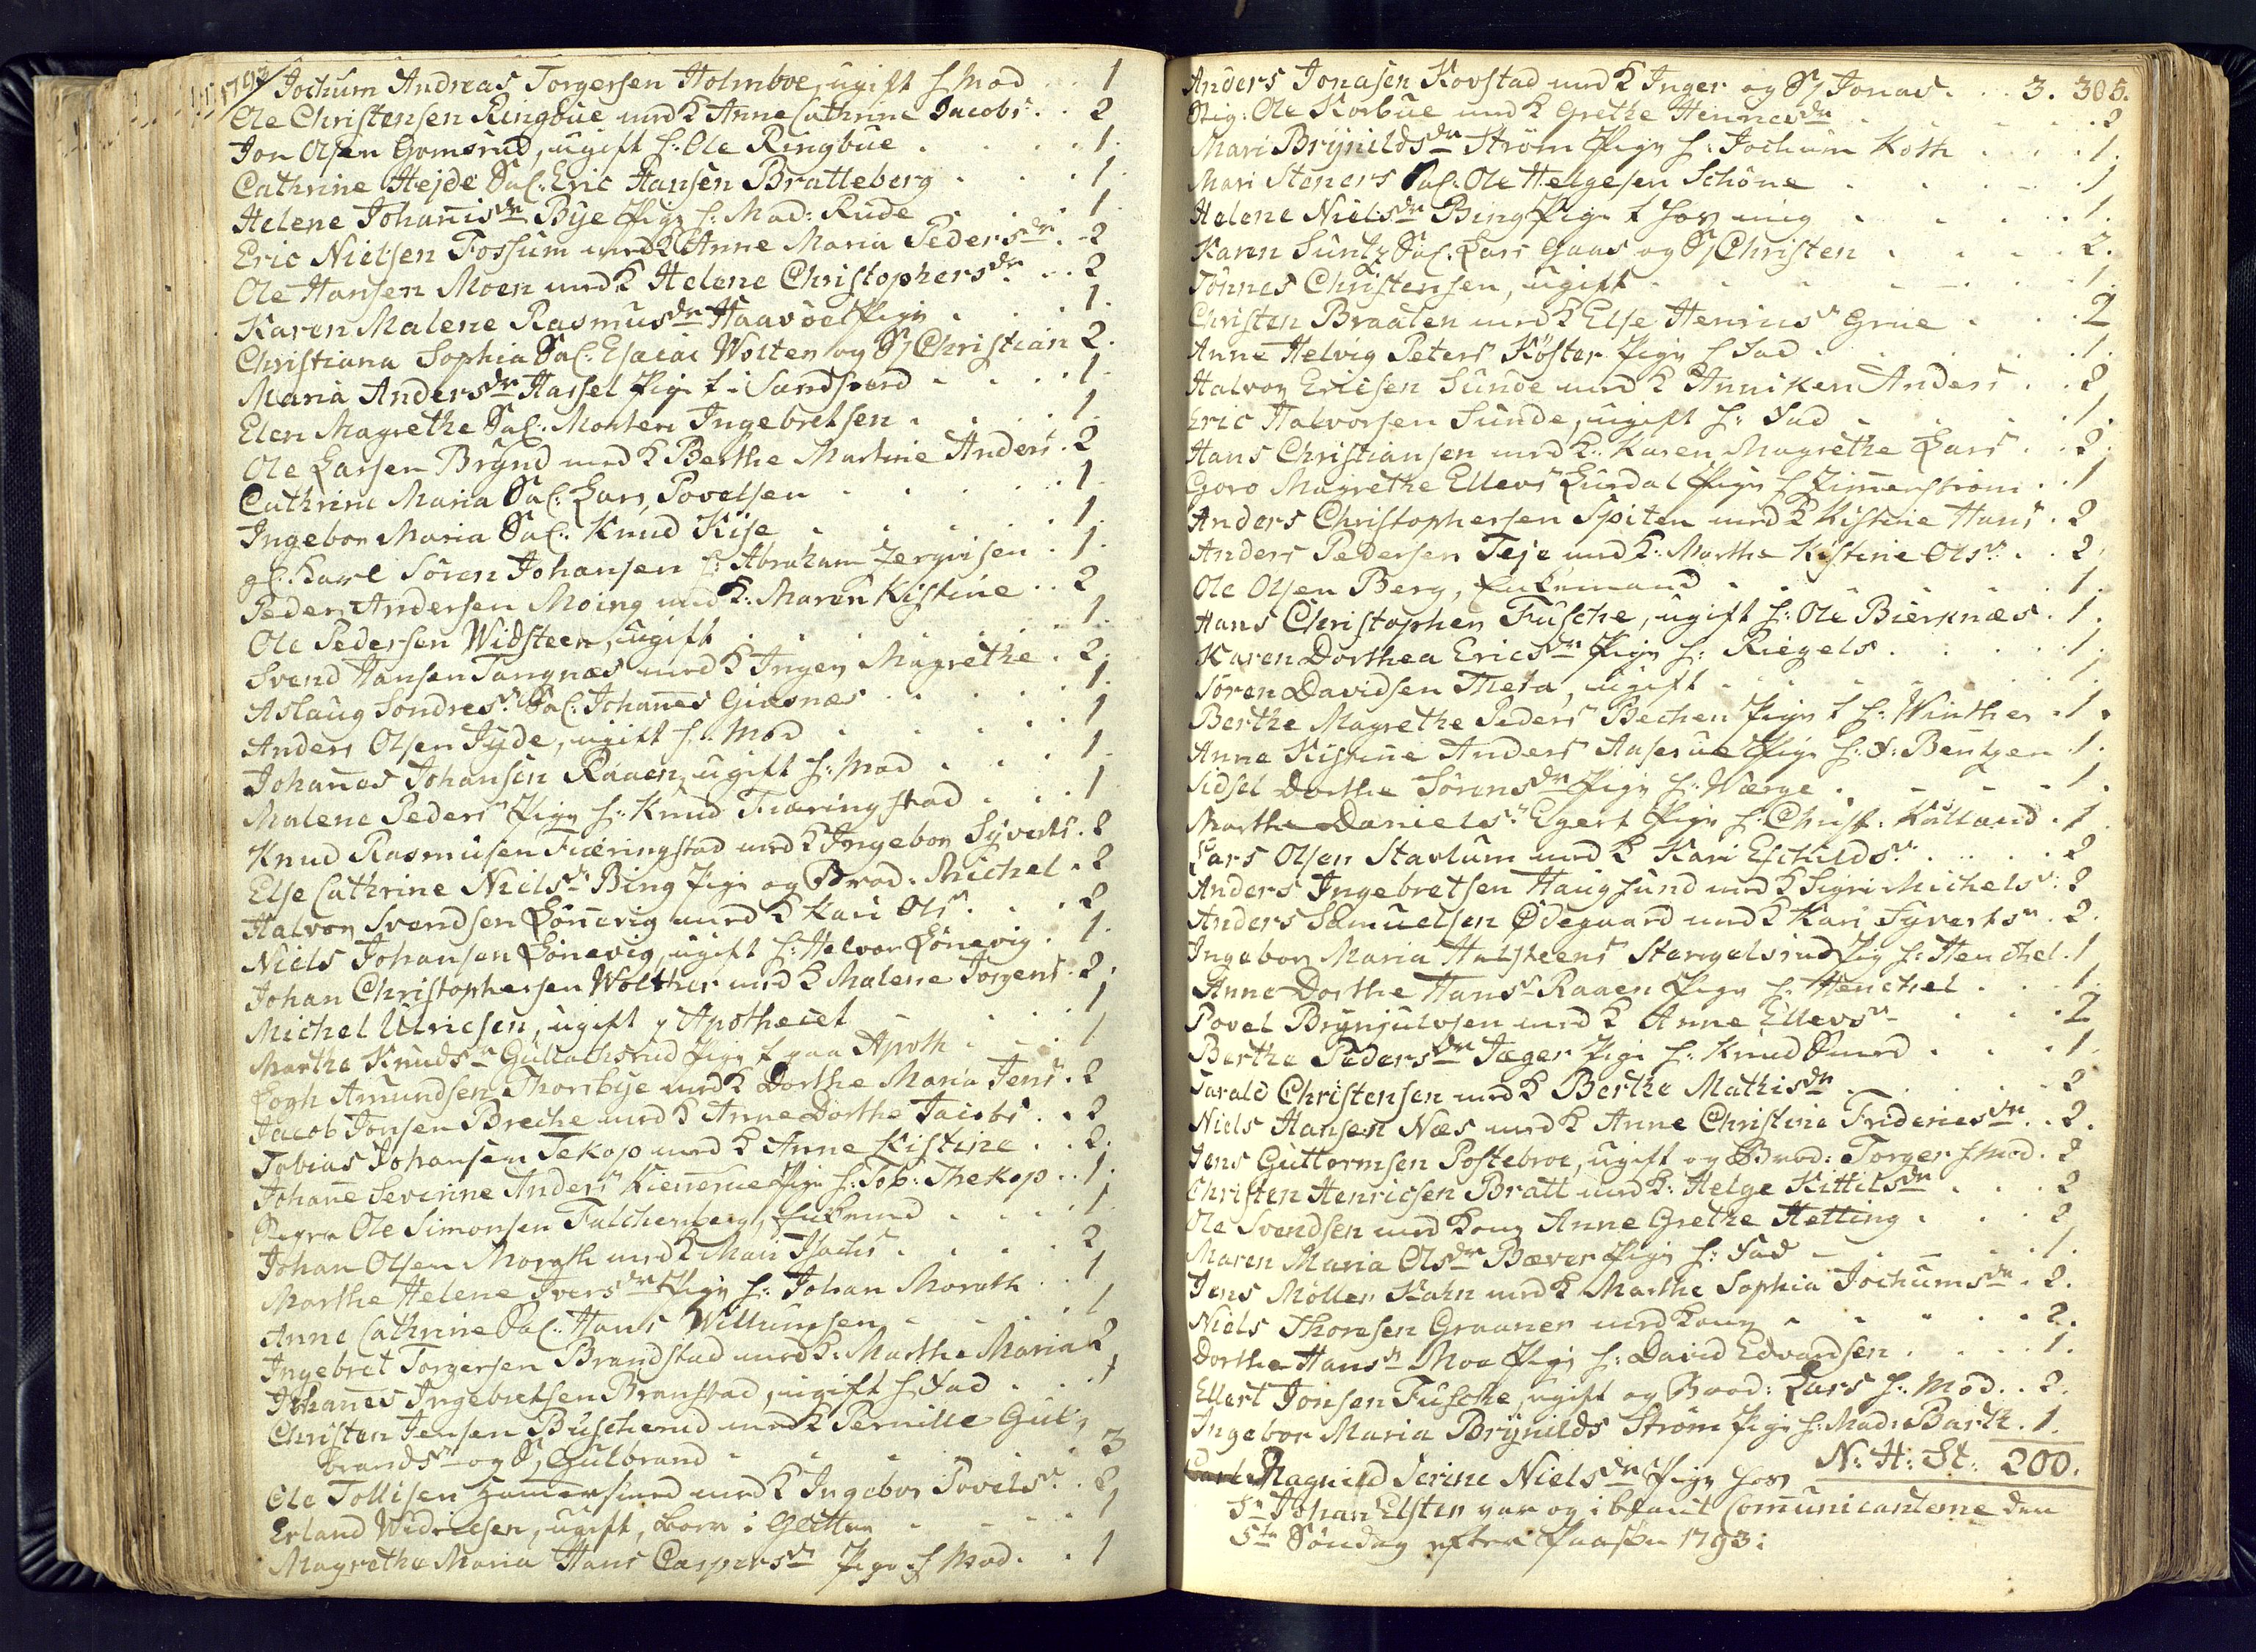 1793
Jochum Andreas Torgersen Holmboe, ugift h Mod . . 1
Ole Christensen Ringbue med K Anne Cathrine Jacobs . . 2
Jon Olsen Gomsrud, ugift h: Ole Ringbue . . . . 1.
Cathrine Hejde Sal: Eric Hansen Bratteberg . . . 1.
Helene Johanisdr Bye Pige h: Mad: Rude . . . 1.
Eric Nielsen Fossum med K Anne Maria Pedersdr . . 2
Ole Hansen Moen med K Helene Christophersdr . . 2
Karen Malene Rasmusdr Haavoel Pige . . . 1.
Christiana Sophia Sal: Esaias Wolter og S Christian 2.
Maria Andersdr Hassel Pige t i Sandsverd . . . . 1.
Elen Magrethe Sal: Morten Ingebretsen . . . . 1.
Ole Larsen Brynd med K Berthe Martine Anders . 2
Cathrine Maria Sal: Lars Povelsen . . . . . 1.
Ingebor Maria Sal: Knud Kise . . . . . 1.
gl: Karl Sören Johansen h: Abraham Jergrisen . 1.
Peder Andersen Moing med K: Maren Kistine . . 2
Ole Pedersen Widsteen, ugift . . . . . 1.
Svend Hansen Tangnæs med K Inger Magrethe . 2.
Aslaug Sondres Sal: Johanes Giesnæs . . . . 1.
Anders Olsen Jyde, ugift h: Mod . . . . 1
Johanes Johansen Raaen, ugift h: Mod . . . 1.
Malene Peders Pige h: Knud Fiæringstad . . . 1
Knud Rasmusen Fiæringstad med K Ingebor Syverts . 2
Else Cathrine Nielsdr Bing Pige og Brod: Michel . 2
Halvor Svendsen Lönnevig med K Kari Ols . . . 2
Niels Johansen Lönevig, ugift h: Helvor Lönevig . 1.
Johan Christophersen Wolther med K Malene Jörgens . 2.
Michel Ulricsen, ugift p Apothecet . . . . 1
Marthe Knudsdr Gullachsrud Pige t paa Apoth . . . 1
Logh Amundsen Thorsbye med K Dorthe Maria Jens . 2
Jacob Jonsen Breche med K Anne Dorthe Jacobs . . 2
Tobias Johansen Tekop med K Anne Kistine . . 2.
Johane Severine Anders Kienerue Pige h: Tob: Thekop . . 1.
Ole Simonsen Falchenberg, Enkemd . . . . 1
Johan Olsen Morath med K Mari Isachs . . . . 2
Marthe Helene Iversdr Pige h: Johan Morath . . 1
Anne Cathrine Sal: Hans Willumsen . . . . 1
Ingebret Torgersen Brandstad med K: Marthe Maria 2
Johanes Ingebretsen Branstad, ugift h Fad . . . 1
Christen Jensen Buscherud med K Pernille Gul-
brandsdr og S, Gulbrand . . . . . 3
Ole Tollisen Hamersmed med K Ingebor Povels . . 2
Erland Widricsen, ugift, born i Glitter . . . . 1
Magrethe Maria Hans Caspersdr Pige h Mod . . 1
Anders Jonasen Kovstad med K Inger og S Jonas . . . 3. 305.
Stig: Ole Korbue med K Grethe Hennesdr . . . . 2
Mari Brynildsdr Ström Pige h: Jochum Koth . . . . 1.
Mari Steners Sal: Ole Helgesen Schöne . . . . 1
Helene Nielsdr Bing Pige t hos mig . . . . 1.
Karen Suntz Sal: Lars Gaas og S Christen . . . . 2.
Tönnes Christensen, ugift . . . . . . 1.
Christen Braaten med K Else Henrics Grue . . . 2
Anne Helvig Peters Köster Pige h Fad . . . . 1.
Halvor Ericsen Sunde med K Anniken Anders . . 2
Eric Halvorsen Sunde, ugift h: Fad . . . . 1.
Hans Christiansen med K: Karen Magrethe Lars . . 2.
Goro Magrethe Ellevs Lurdal Pige h Zimerström . . 1
Anders Christophersen Spiten med K Kistine Hans . 2
Anders Pedersen Teje med K: Marthe Kistine Ols . . 2.
Ole Olsen Berg, Enkemand . . . . . 1.
Hans Christopher Fusche, ugift h: Ole Bierknæs . 1.
Karen Dorthea Ericsdr Pige h: Riegels . . . . 1.
Sören Davidsen Meta, ugift . . . . . 1.
Berthe Magrethe Peders Bechen Pige t h: Winther . 1.
Anne Kistine Anders Aaserue Pige h: J: Bentzen . 1.
Sidsel Dorthe Sörensdr Pige h: Værge . . . . 1.
Marthe Daniels Egert Pige h: Christ: Kulland . 1
Lars Olsen Stavlum med K Kari Eschilds . . . . 2
Anders Ingebretsen Haugsund med K Sigri Michels . 2
Anders Samuelsen Ødegaard med K Kari Syverts . 2.
Ingebor Maria Halsteens Stengelsrud Pig h: Henchel . 1
Anne Dorthe Hans Raaen Pige h: Henchel . . . 1.
Povel Brynjulvsen med K Anne Ellevs . . . . 2
Berthe Pedersdr Jæger Pige h: Knud Smed . . . 1.
Tarald Christensen med K Berthe Mathisdr . . . . 2
Niels Hansen Næs med K Anne Christine Fridericsdr . . 2.
Jens Guttormsen Postebroe, ugift og Brod: Torger h Mod . 2
Christen Henricsen Bratt med K: Helge Kittilsdr . . . 2
Ole Svendsen med Kone Anne Grethe Hetting . . . 2
Maren Maria Olsdr Bæver Pige h: Fad . . . . 1.
Jens Möller Kahn med K Marthe Sophia Jochumsdr . 2.
Niels Thoresen Graaner med Kone . . . . . 2.
Dorthe Hansdr Moe Pige h: David Edvardsen . . . . 1.
Ellert Jonsen Fusche, ugift og Brod: Lars h: Mod . . 2.
Ingebor Maria Brynilds Ström Pige h: Mad: Barth . 1.
N: H: St. 200.
Ragnild Serine Nielsdr Pige hos
Hr Johan Elster var og iblant Comunicanterne den
5te Söndag efter Paaske 1793: